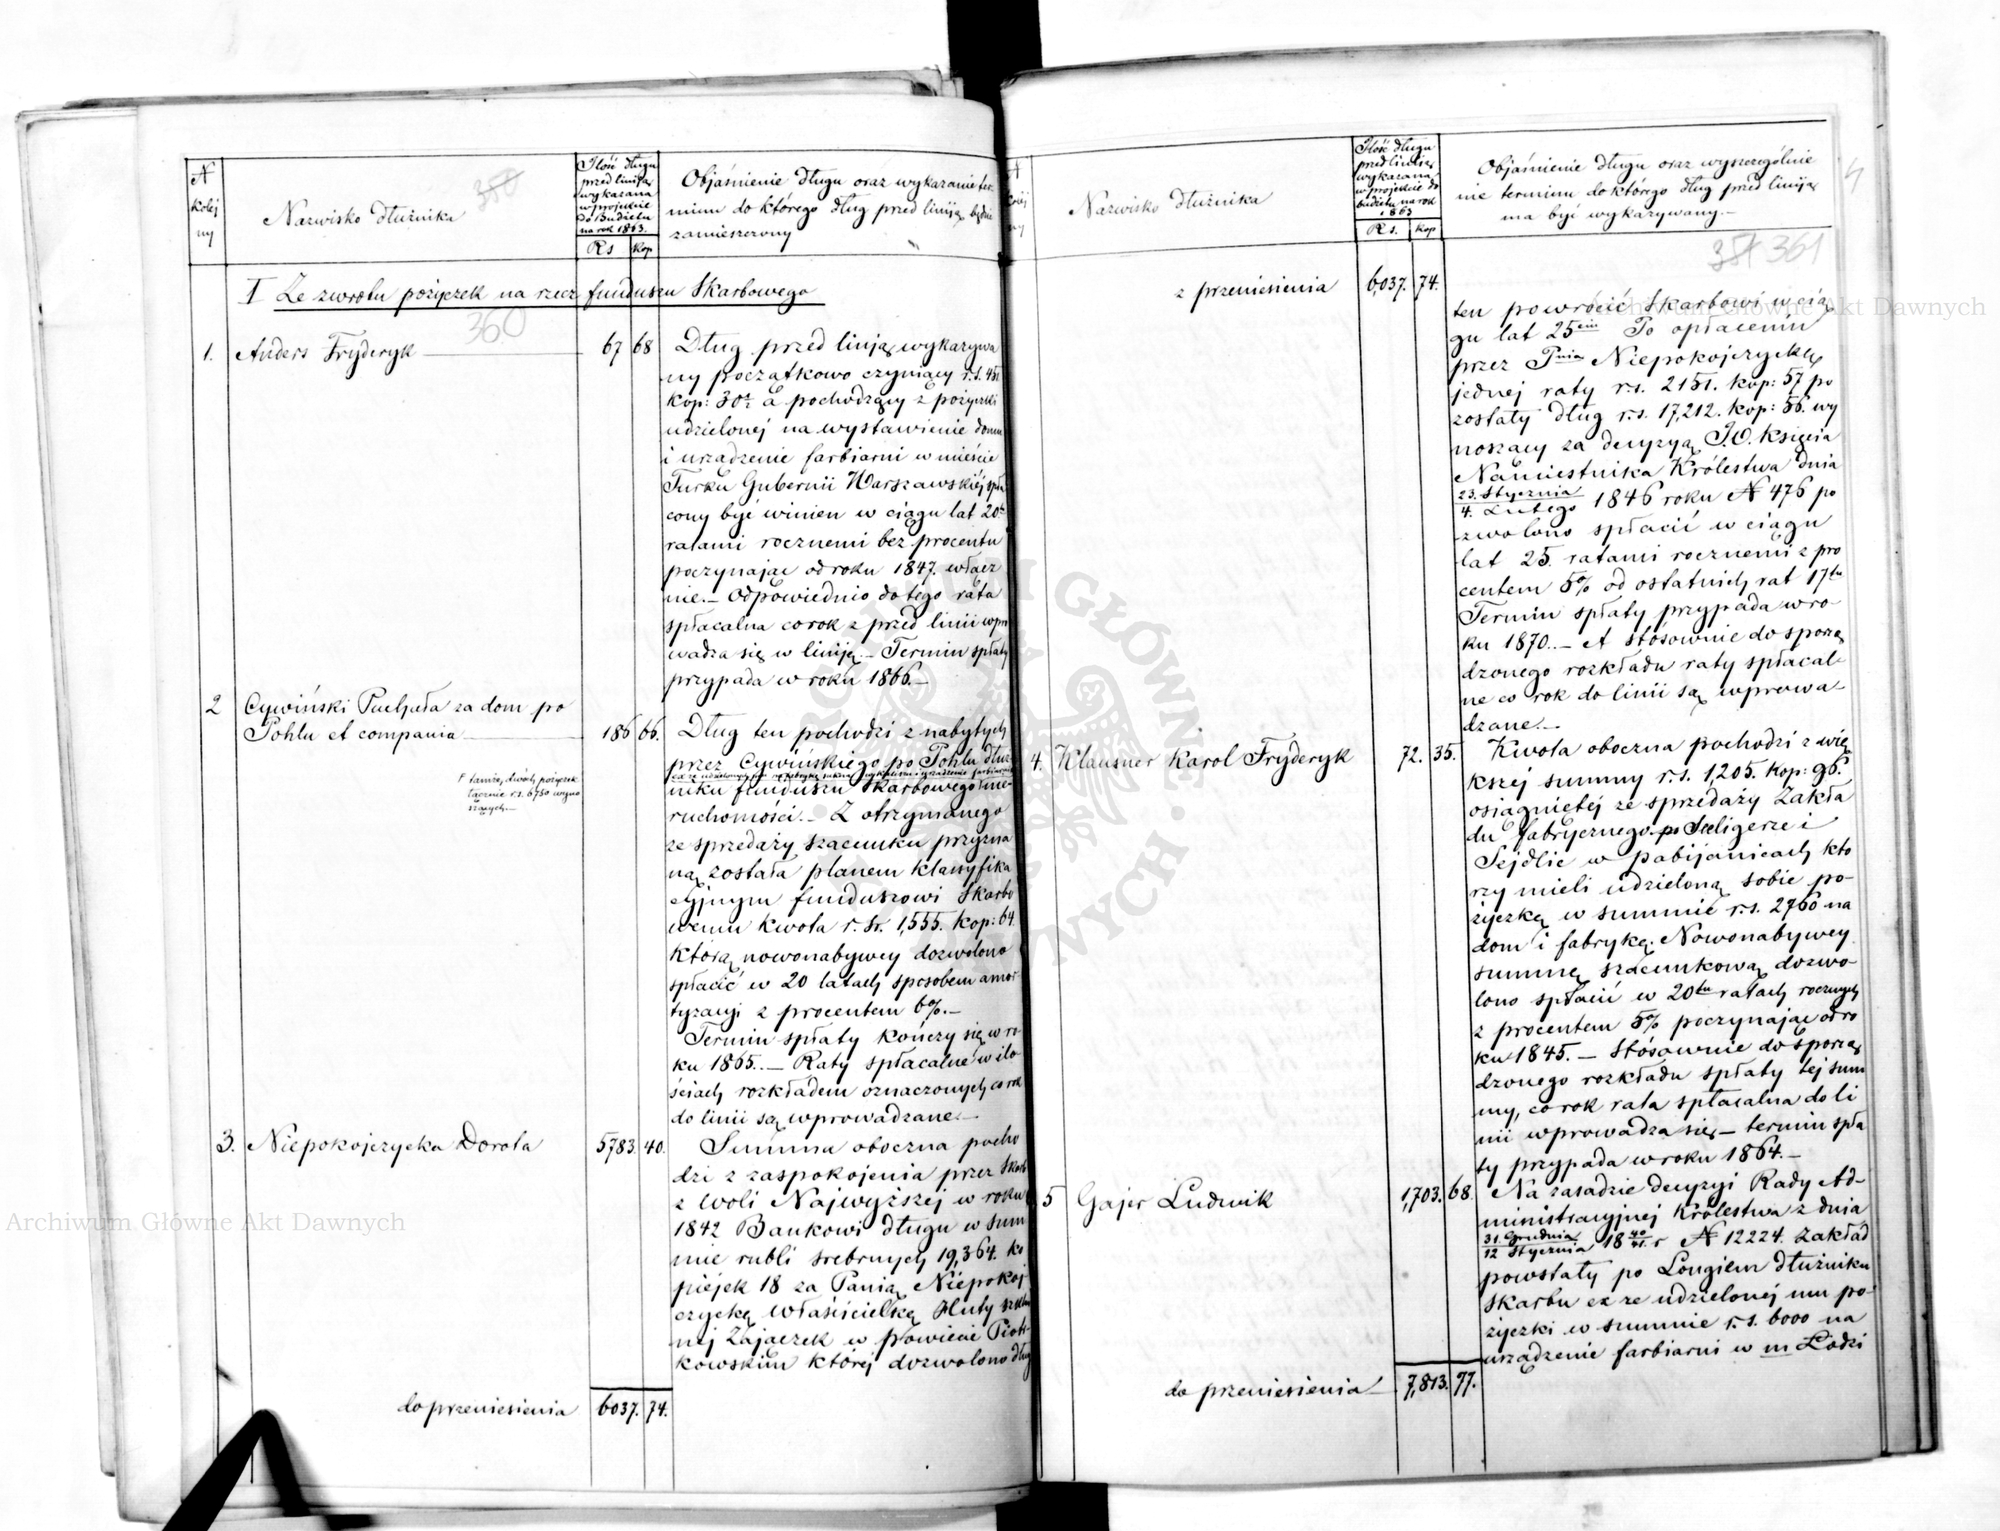 N kolej ny
Nazwisko Dłużnika
350
Ilość długu przed liniją wykazana w projekcie do Budżetu na rok 1863.
Rs kop
Objaśnienie długu oraz wykazanie ter
minu do którego dług przed liniją będzie
zamieszczony
I Ze zwrotu pożyczek na rzecz funduszu Skarbowego
360
1. Anders Fryderyk 67 68
Dług przed linją wykazywa
ny początkowo czyniący r.s. 451
kop: 30½ a pochodzący z pożyczki
udzielonej na wystawienie domu
i urządzenie farbiarni w mieście
Turku Gubernii Warszawskiéj spła
cony być winien w ciągu lat 20tu
ratami rocznemi bez procentu
poczynając od roku 1847. włącz
nie.— Odpowiednio do tego rata
spłacalna corok z przed linii wpro
wadza się w liniję.— Termin spłaty
przypada w roku 1866.—
2 Cywiński Puchała za dom po
Pohlu et compania 186 66.
tamże, dwóch pożyczek
łącznie r.s. 6750 wyno
szących.—
Dług ten pochodzi z nabytych
przez Cywińskiego po Pohlu dłuż
niku funduszu Skarbowego nie-
ruchomości.— Z otrzymanego
ze sprzedaży szacunku przyzna
ną została planem klassyfika
cyjnym funduszowi Skarbo
wemu kwota r. sr. 1,555. kop: 64.
którą nowonabywcy dozwolono
spłacić w 20 latach sposobem amor
tyzacyi z procentem 6%.—
Termin spłaty kończy się w ro
ku 1865.— Raty spłacalne w ilo
ściach rozkładem oznaczonych co rok
do linii są wprowadzane.—
3. Niepokojczycka Dorota 5783. 40.
Summa oboczna pocho
dzi z zaspokojenia przez Skarb
z woli Najwyższéj w roku
1842 Bankowi długu w sum
mie rubli srebrnych 19,364. ko
piejek 18 za Panią Niepokoj
czycką właścicielkę Huty szkla
nej Zajączek w powiecie Piotr-
kowskim której dozwolono dług
do przeniesienia 6037. 74.
N kolej ny
Nazwisko Dłużnika
Ilość długu przed liniją wykazana w projekcie do budżetu na rok 1863
Rs. kop
Objaśnienie długu oraz wyszczególnie
nie terminu do którego dług przed liniją
ma być wykazywany.—
4
351 361
z przeniesienia 6,037. 74.
ten powrócić Skarbowi w cią
gu lat 25ciu Po opłaceniu
przez Pnią Niepokojczycką
jednej raty r.s. 2151. kop: 57 po
zostały dług r.s. 17,212. kop: 56. wy
noszący za decyzyą J.O. Księcia
Namiestnika Królestwa dnia
23. Stycznia
4. Lutego 1846 roku N 476 po
zwolono spłacić w ciągu
lat 25. ratami rocznemi z pro
centem 5% od ostatnich rat 17tu
Termin spłaty przypada w ro-
ku 1870.— A stósownie do sporzą
dzonego rozkładu raty spłacal-
ne co rok do linii są wprowa-
dzane.—
4. Klausner Karol Fryderyk 72. 35.
Kwota oboczna pochodzi z wię
kszej summy r.s. 1,205. kop: 96.
osiągniętéj ze sprzedaży Zakła
du fabrycznego po Seeligerze i
Sejdlic w pabijanicach któ
rzy mieli udzieloną sobie po-
życzkę w summie r.s. 2760 na
dom i fabrykę. Nowonabywcy
summę szacunkową dozwo-
lono spłacić w 20tu ratach rocznych
z procentem 5% poczynając od ro
ku 1845. — Stósownie do sporzą
dzonego rozkładu spłaty tej sum
my, co rok rata spłacalna do li
nii wprowadza się.— termin spła
ty przypada w roku 1864.—
5 Gajer Ludwik 1,703. 68.
Na zasadzie decyzyi Rady Ad-
ministracyjnej Królestwa z dnia
31. Grudnia
12 Stycznia 18 40/41. r N 12224. Zakład
powstały po Longiem dłużniku
Skarbu ex ze udzielonéj mu po-
życzki w summie r.s. 6000 na
urządzenie farbiarni w m Łodzi
do przeniesienia 7,813. 77.
Archiwum Główne Akt Dawnych
Archiwum Główne Akt Dawnych
ARCHIWUM GŁÓWNE AKT DAWNYCH